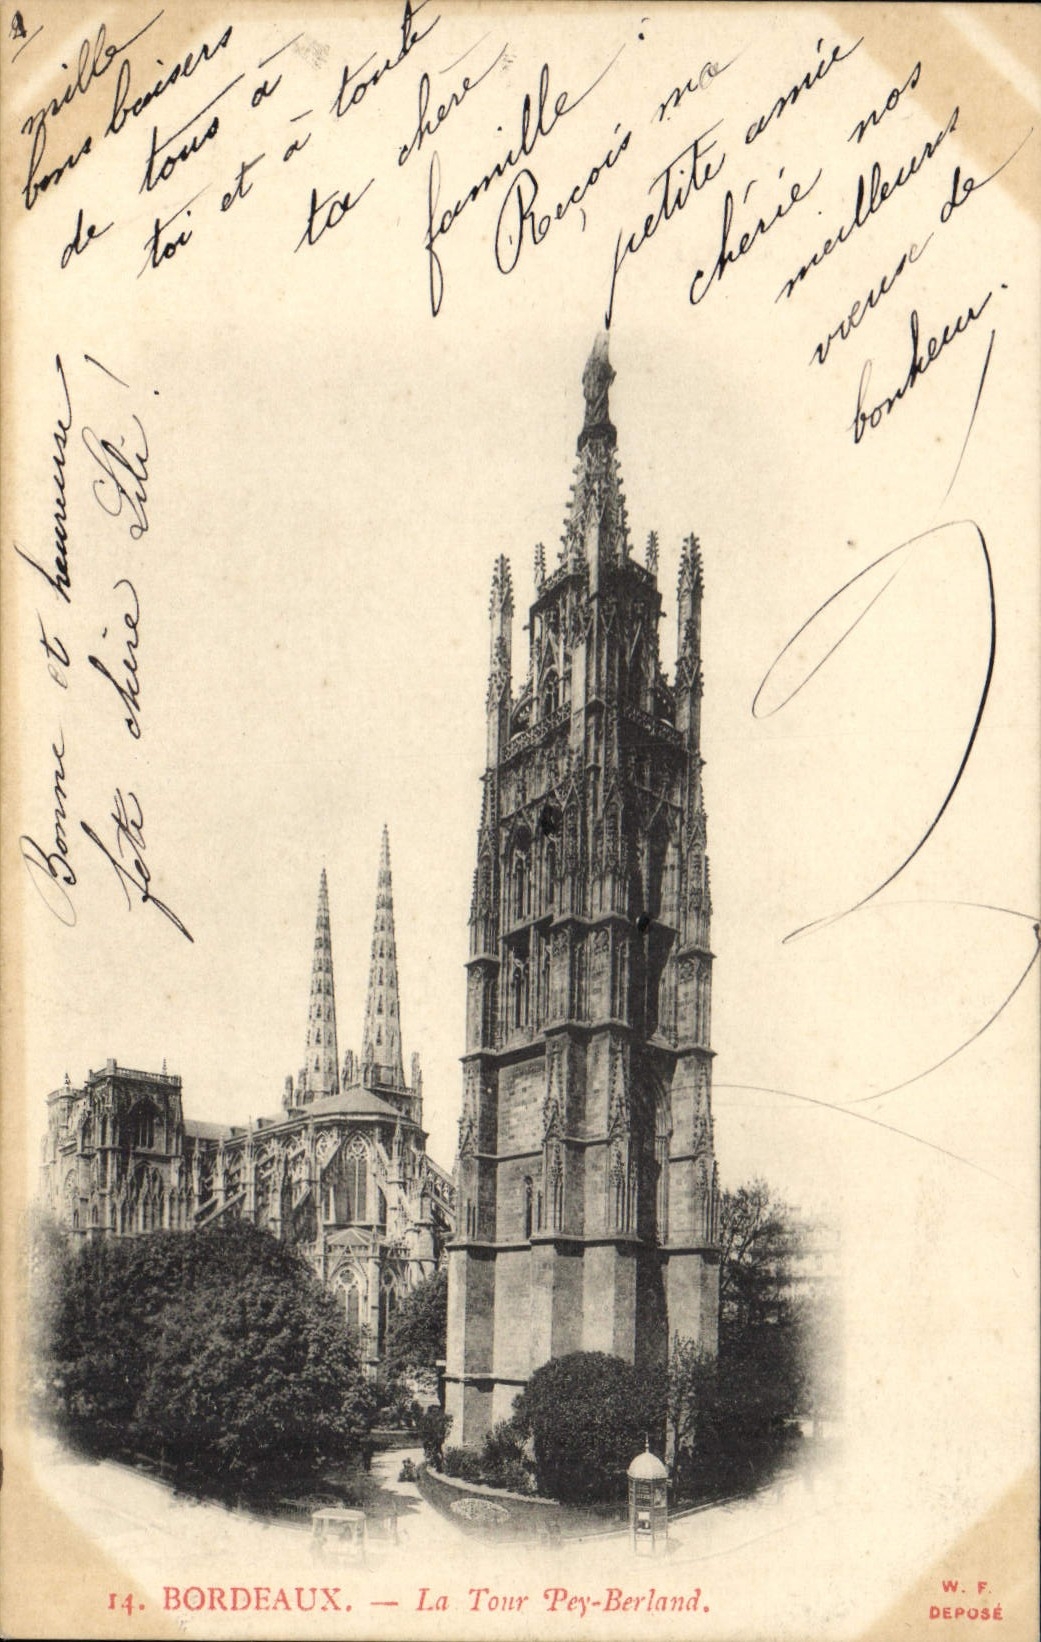 mille
bons baisers
de tous à
toi et à toute
ta chère
famille :
Reçois ma
petite amie
chérie nos
meilleurs
vœux de
bonheur.
Bonne et heureuse
fête chère Lili !
14. BORDEAUX. — La Tour Pey-Berland.
W. F.
DEPOSÉ